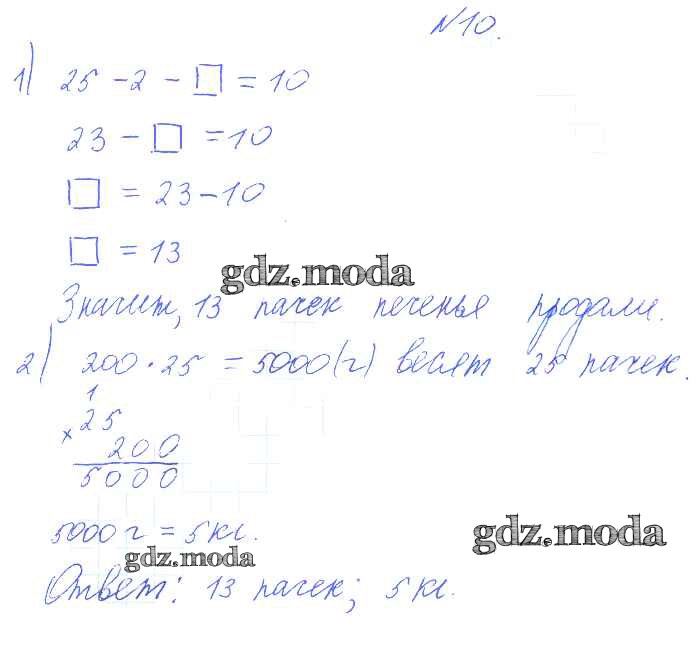 №10.
1) 25 - 2 - □ = 10
23 - □ = 10
□ = 23 - 10
□ = 13
gdz.moda
Значит, 13 пачек печенья продали.
2) 200 · 25 = 5000 (г) весят 25 пачек.
1
× 25
200
5000
5000 г = 5 кг.
gdz.moda
gdz.moda
Ответ: 13 пачек; 5 кг.